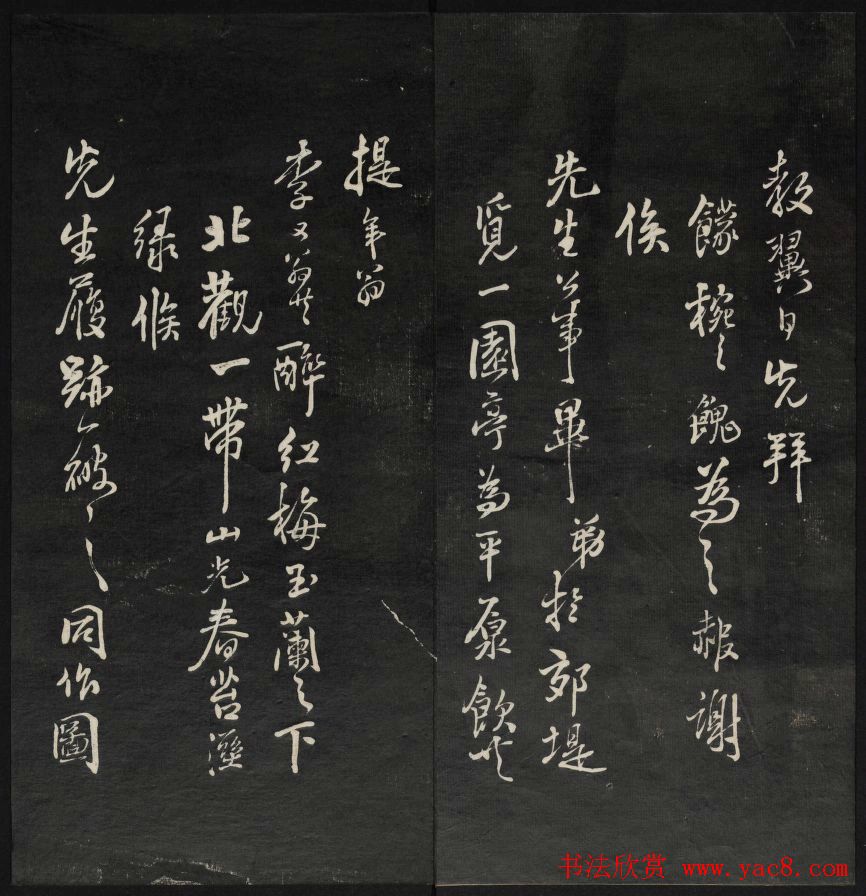 教翼日先拜
饛椀之餽為之赧謝
俟
先生公事畢弟於郊堤
覓一園亭為平原飲共
提年翁
李又翁共醉紅梅玉蘭之下
北觀一帶山光春苔溼
綠候
先生履跡破之同作圖
书法欣赏 www.yac8.com